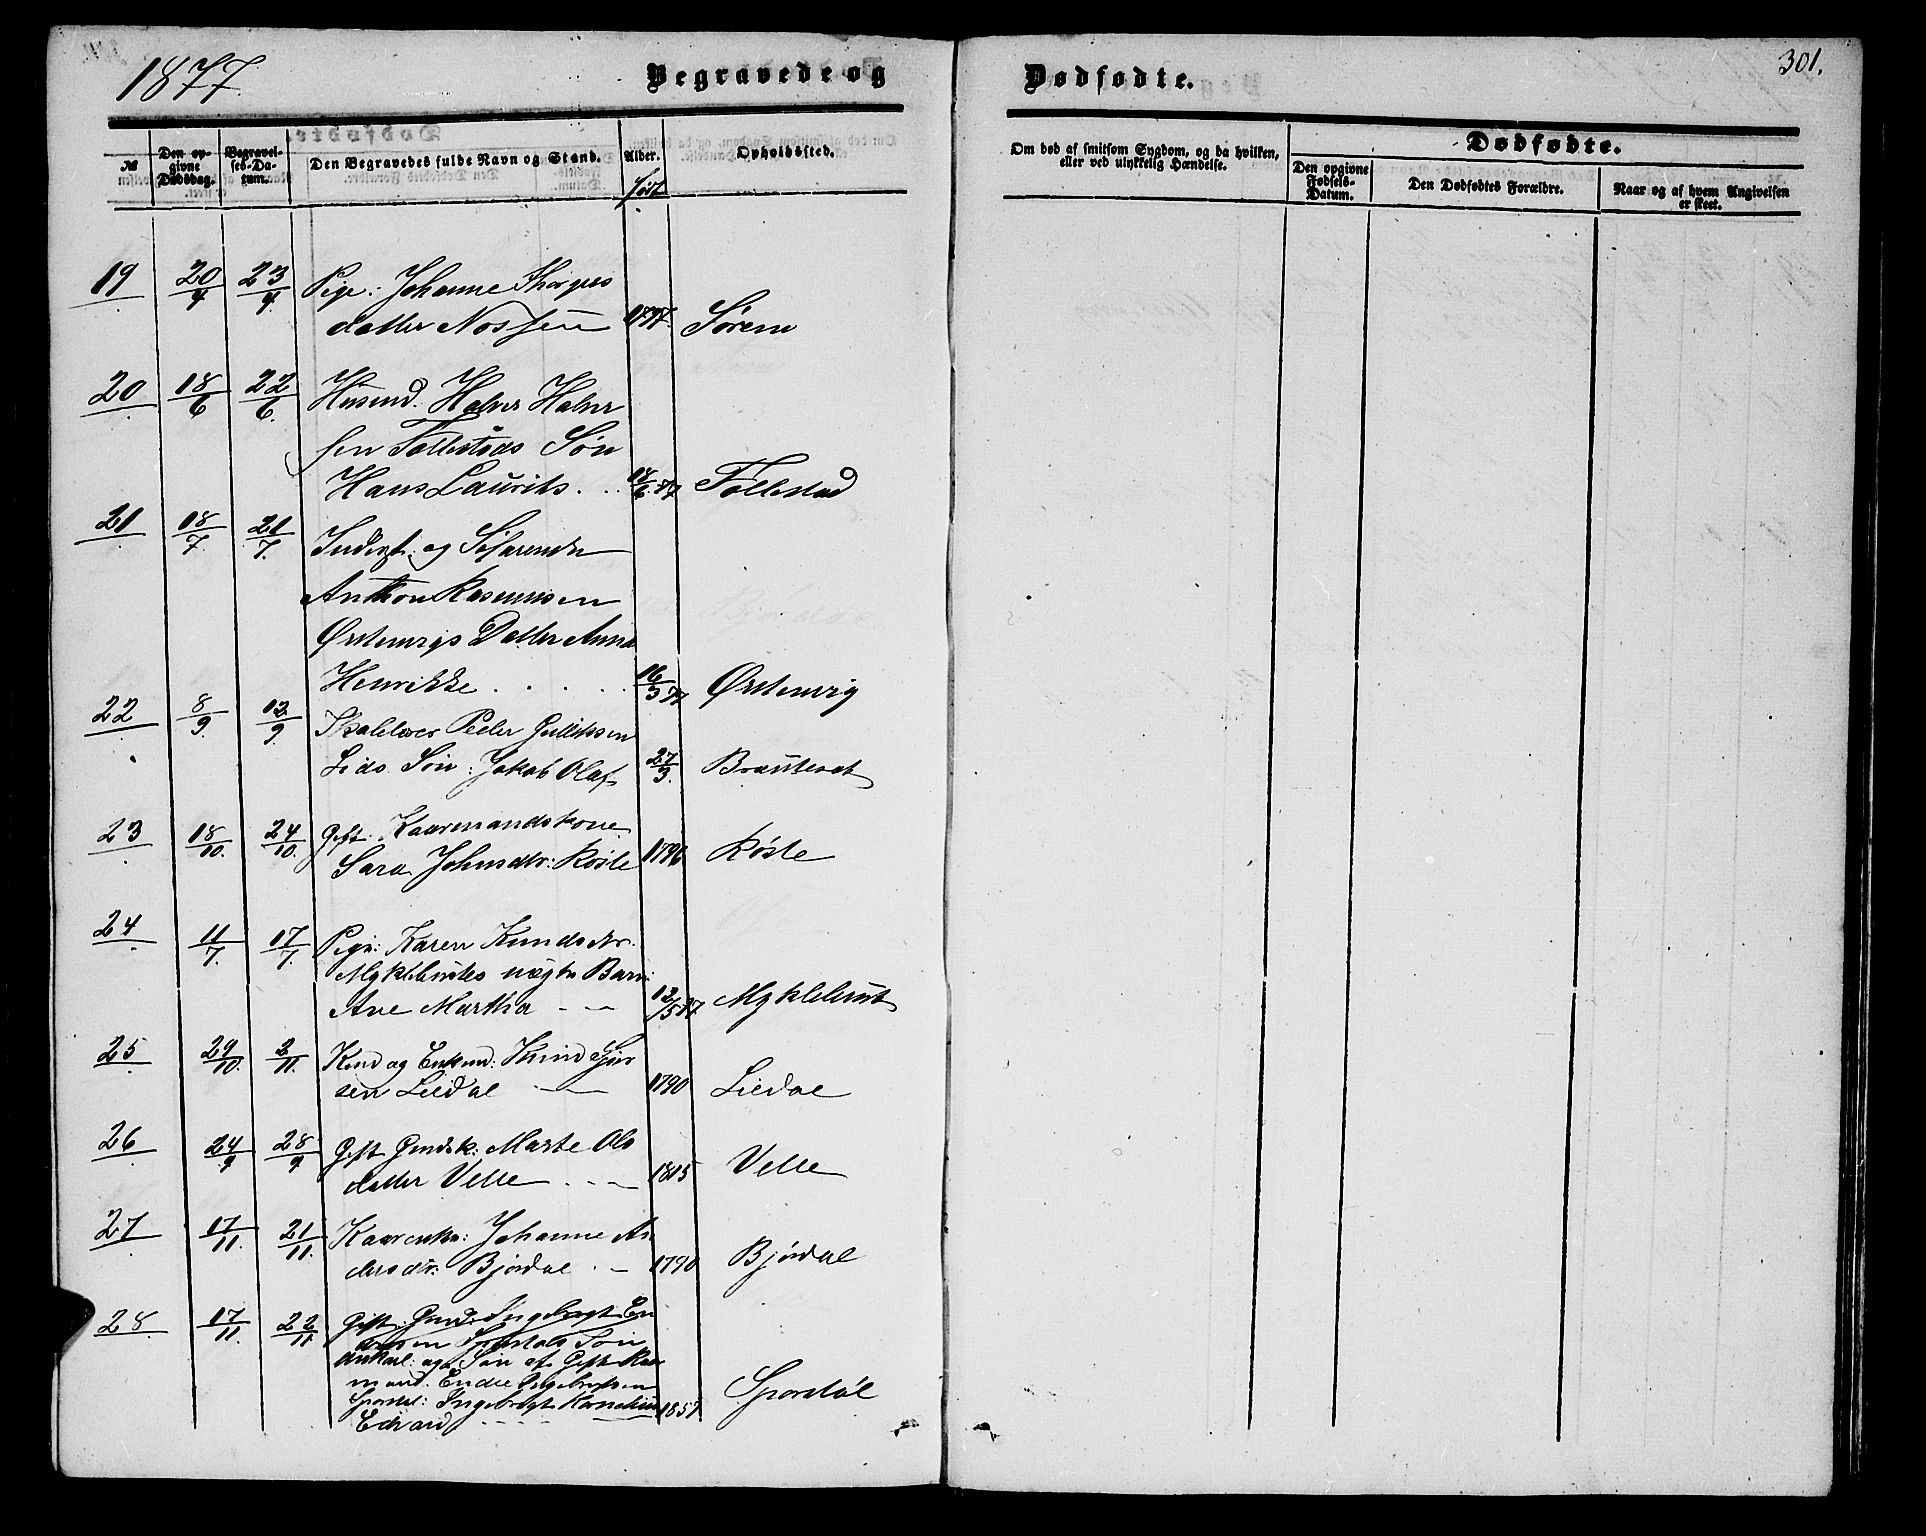 1877.
Begravede og
Dødfødte.
301.
№
Den opgivne Dødsdag.
Begravelses-Datum.
Den Begravedes fulde Navn og Stand.
Alder.
født
Opholdssted.
Om død af smitsom Sygdom, og da hvilken, eller ved ulykkelig Hændelse.
Dødfødte.
Den opgivne Fødsels-Datum.
Den Dødfødtes Forældre.
Naar og af hvem Angivelsen er skeet.
19 20/4 23/4 Pige: Johanne
datter Sørem
20 18/6 22/6 Husmd. Halvor Halvor
sen Follestads Søn
Hans Laurits . . 18/6 77 Follestad
21 18/7 21/7 Inderst og
Anthon Rasmussen
Østenvigs Datter Anna
Henrikke . . . . 16/3 77 Østenvig
22 8/9 12/9 Skolelærer Peder Gulliksen
Lids Søn: Jakob Olaf 27/3. Brautesæt
23 18/10. 24/10. Gift. Kaarmandskone
Sara Johnsdtr: Røste 1796 Røste
24 11/7. 17/7. Pige: Karen Knudsdtr.
Myklebustes uægte Barn:
Ane Martha — — 12/5 77 Myklebust
25 29/10. 2/11. Kaarmd og Enkemd: Knud
sen Liedal — 1790 Liedal
26 24/9 28/9 Gift Gmdsk: Marte Ols
datter Velle . . — 1815 Velle
27 17/11. 21/11. Kaarenke: Johanne An
dersdtr: Bjørdal . — 1790 Bjørdal
28 17/11. 22/11 Gift: Gmd: Ingebrigt En
dresen Spordals Søn
Ungkarl: og Søn af Gift Kaar
mand: Endre Ingebrigtsen
Spordal: Ingebrigt Kornelius
Edvard 1857 Spordal